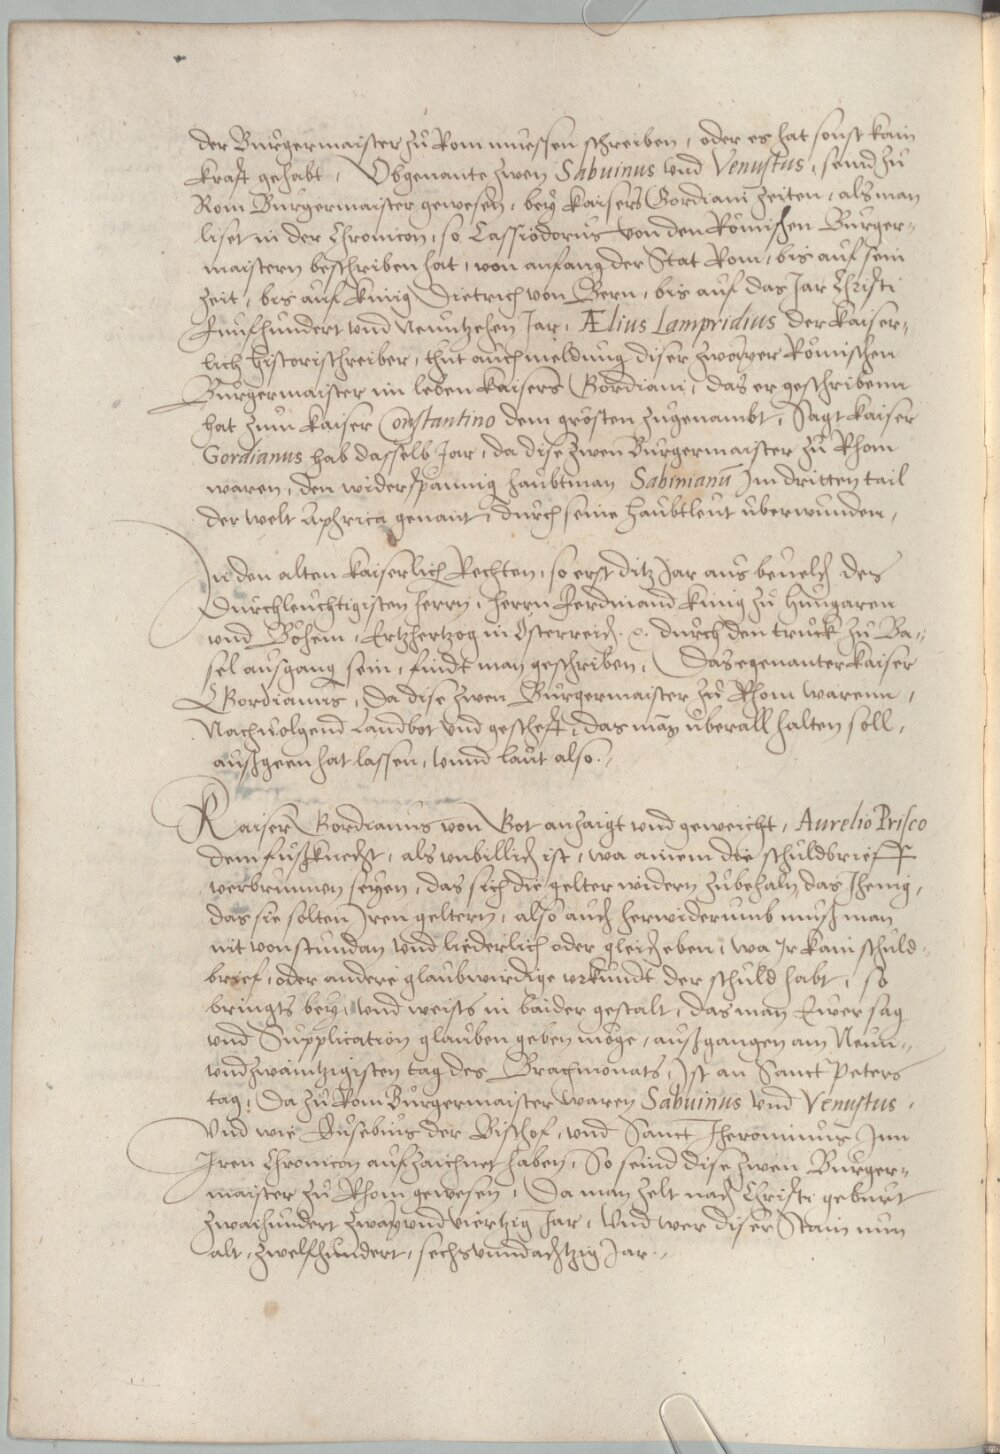 der Burgermaister zů Rom muessen schreiben, oder es hat sonst kain
krafft gehabt, Obgenante zwen Sabuinus vnd Venustus, seind zů
Rom Burgermaister gewesen, bey kaisers Gordiani zeiten, als man
liset in der Chronicon, so Cassiodorus von den Römischen Burger-
maistern beschriben hat, von anfang der Stat Rom, bis auf sein
zeit, bis auf künig Dietrich von Bern, bis auf das Jar Christi
Funfhundert vnd Neuntzehen Jar, Ælius Lampridius der kaiser-
lich Historischreiber, thut auch meldung diser zwayer Römischen
Burgermaister im leben kaisers Gordiani, das er geschribenn
hat zum kaiser Constantino dem grösten zůgenambt, Sagt kaiser
Gordianus hab dasselb Jar, da dise zwen Burgermaister zů Rhom
waren, den widerspännig haubtman Sabinianū Jm dritten tail
der welt Aphrica genant, durch seine haubtleut überwunden,
Jn den alten kaiserlich Rechten, so erst ditz Jar aus beuelch des
Durchleuchtigisten herrn, herrn Ferdinand künig zů Hungaren
vnd Böhem, Ertzhertzog in Österreich .x. durch den truck zů Ba-
sel ausgang sein, findt man geschriben, Das egenanter kaiser
Gordianus, Da dise zwen Burgermaister zů Rhom warenn,
Nachuolgend Landbot vnd gescheft, das man überall halten soll,
außgeen hat lassen, vnnd laut also.
Kaiser Gordianus von Got anzaigt vnd geweicht, Aurelio Prisco
dem fußknecht, als vnbillich ist, wa ainem die schuldbrief
verbrunnen seyen, das sich die gelter widern zůbezaln das Jhenig,
das sie solten Jren geltern, also auch herwiderumb muß man
nit von stundan vnd liederlich oder gleich eben, wa Jr kain schuld-
brief, oder andere glaubwirdige vrkundt der schuld habt, so
bringts bey, vnd weists in baider gestalt, das man Ewer sag
vnd Supplication glauben geben möge, außgangen am Neun-
vndzwaintzigisten tag des Brachmonats, Jst an Sanct Peters
tag, Da zů Rom Burgermaister waren Sabuinus vnd Venustus.
Vnd wie Eusebius der Bischof, vnd Sanct Jheronimus Jnn
Jren Chronicon aufzaichnet haben, So seind dise zwen Burger-
maister zů Rhom gewesen, Da man zelt nach Christi geburt
zwaihundert zwayvndviertzig Jar, Vnd wer diser Stain nun
alt, zwelfhundert, sechsvnndachtzig Jar.